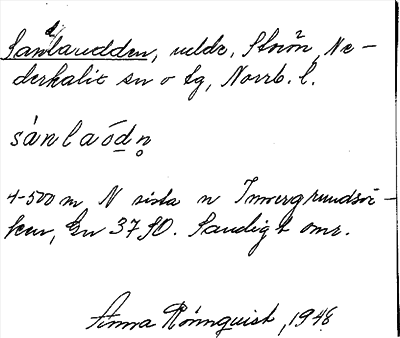 Sandlaudden, udde, Storön, Ne-
derkalix sn o tg, Norrb. l.
sánlaódn̥
4-500 m N sista n Innergrundsö-
ken, Gn 37 SO. Sandigt omr.
Anna Rönnquist, 1948